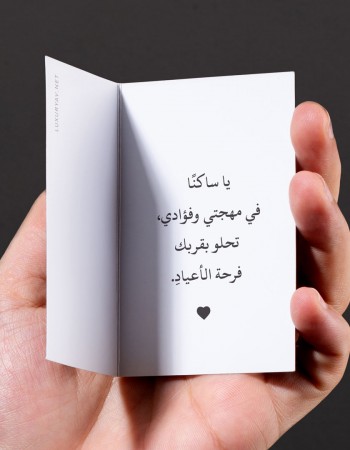 LUXURYBY.NET
يا ساكنًا
في مهجتي وفؤادي،
تحلو بقربك
فرحة الأعيادِ.